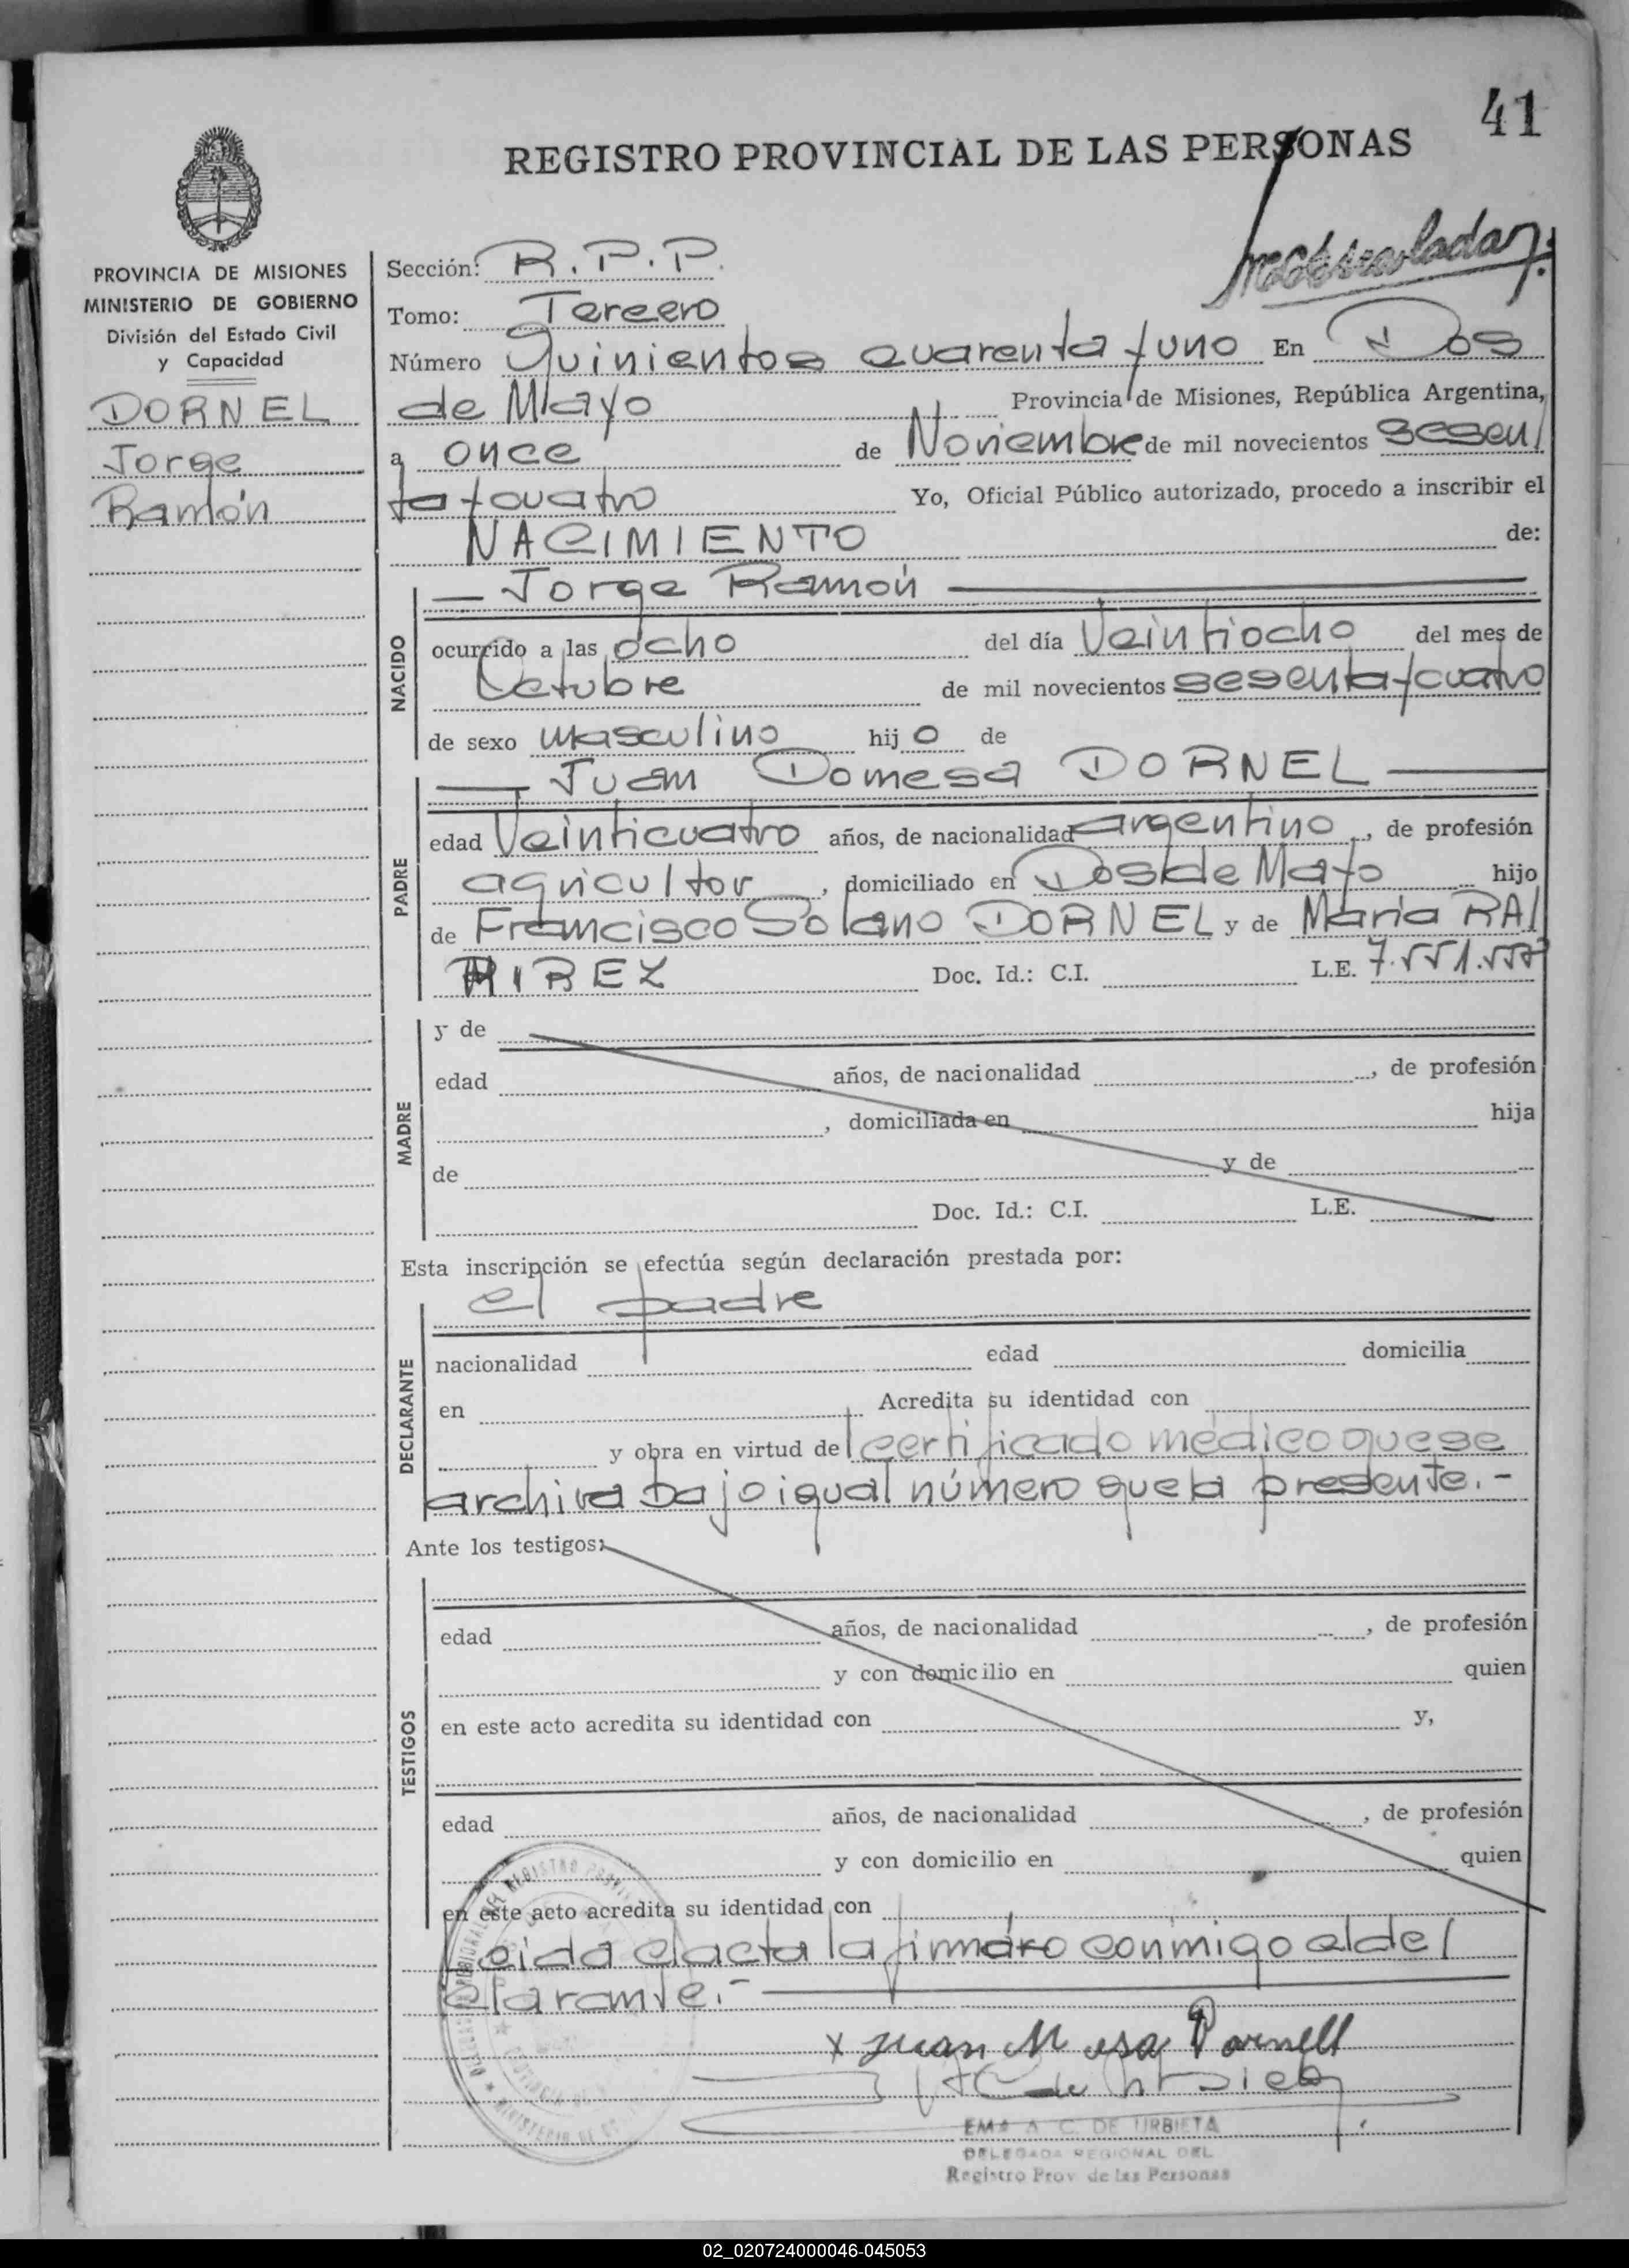 41
REGISTRO PROVINCIAL DE LAS PERSONAS
PROVINCIA DE MISIONES
MINISTERIO DE GOBIERNO
División del Estado Civil
y Capacidad
DORNEL
Jorge
Ramón
Sección: R.P.P.
Tomo: Tercero
Número Quinientos cuarenta y uno En Dos
de Mayo Provincia de Misiones, República Argentina,
a once de Noviembre de mil novecientos sesen/
ta y cuatro Yo, Oficial Público autorizado, procedo a inscribir el
NACIMIENTO de:
NACIDO
— Jorge Ramón —
ocurrido a las ocho del día Veintiocho del mes de
Octubre de mil novecientos sesenta y cuatro
de sexo masculino hij o de
PADRE
— Juan Domesa DORNEL —
edad Veinticuatro años, de nacionalidad argentino, de profesión
agricultor, domiciliado en Dos de Mayo hijo
de Francisco Solano DORNEL y de Maria RA/
MIREZ Doc. Id.: C.I. L.E. 7.551.557
MADRE
y de
edad años, de nacionalidad , de profesión
, domiciliada en hija
de y de
Doc. Id.: C.I. L.E.
Esta inscripción se efectúa según declaración prestada por:
DECLARANTE
el padre
nacionalidad edad domicilia
en Acredita su identidad con
y obra en virtud de certificado médico que se
archiva bajo igual número que la presente.-
Ante los testigos:
TESTIGOS
edad años, de nacionalidad , de profesión
y con domicilio en quien
en este acto acredita su identidad con y,
edad años, de nacionalidad , de profesión
y con domicilio en quien
en este acto acredita su identidad con
Leida el acta la firmáro conmigo el de/
clarante.-
x Juan M esa Dornell
EMA A C. DE URBIETA
DELEGADA REGIONAL DEL
Registro Prov de las Personas
02_020724000046-045053